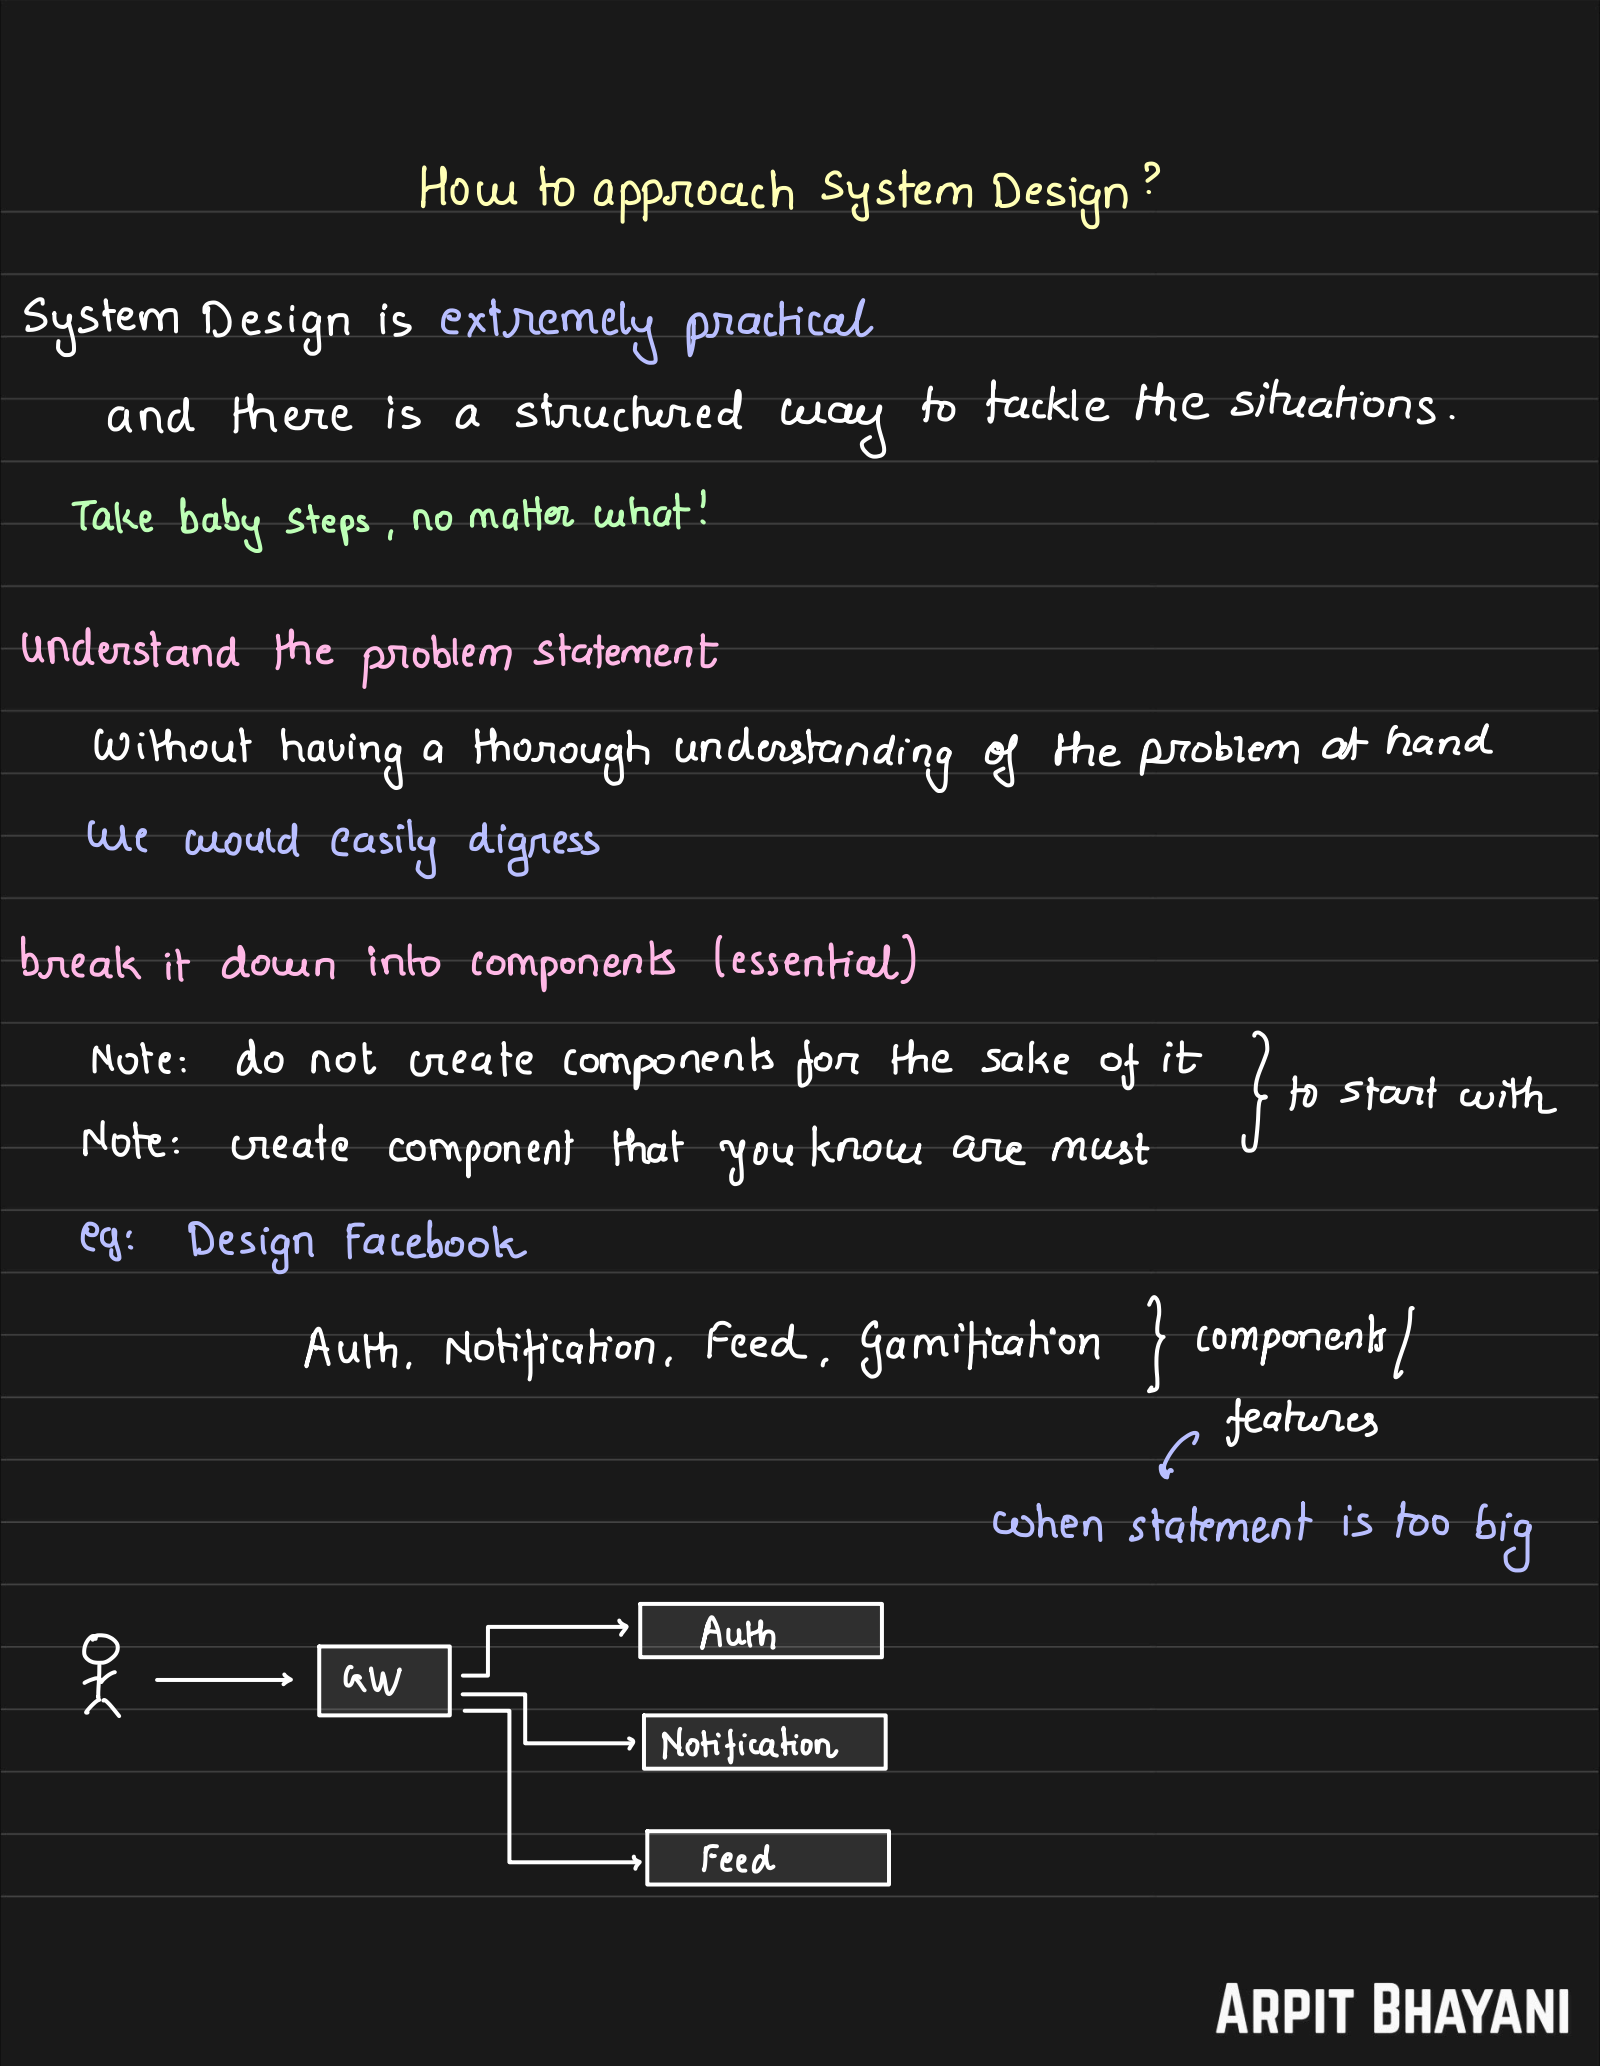 How to approach System Design?
System Design is extremely practical
and there is a structured way to tackle the situations.
Take baby steps, no matter what!
Understand the problem statement
Without having a thorough understanding of the problem at hand
We would easily digress
break it down into components (essential)
Note: do not create components for the sake of it
} to start with
Note: create component that you know are must
eg: Design Facebook
Auth, Notification, Feed, Gamification } components/
features
when statement is too big
Auth
GW
Notification
Feed
ARPIT BHAYANI